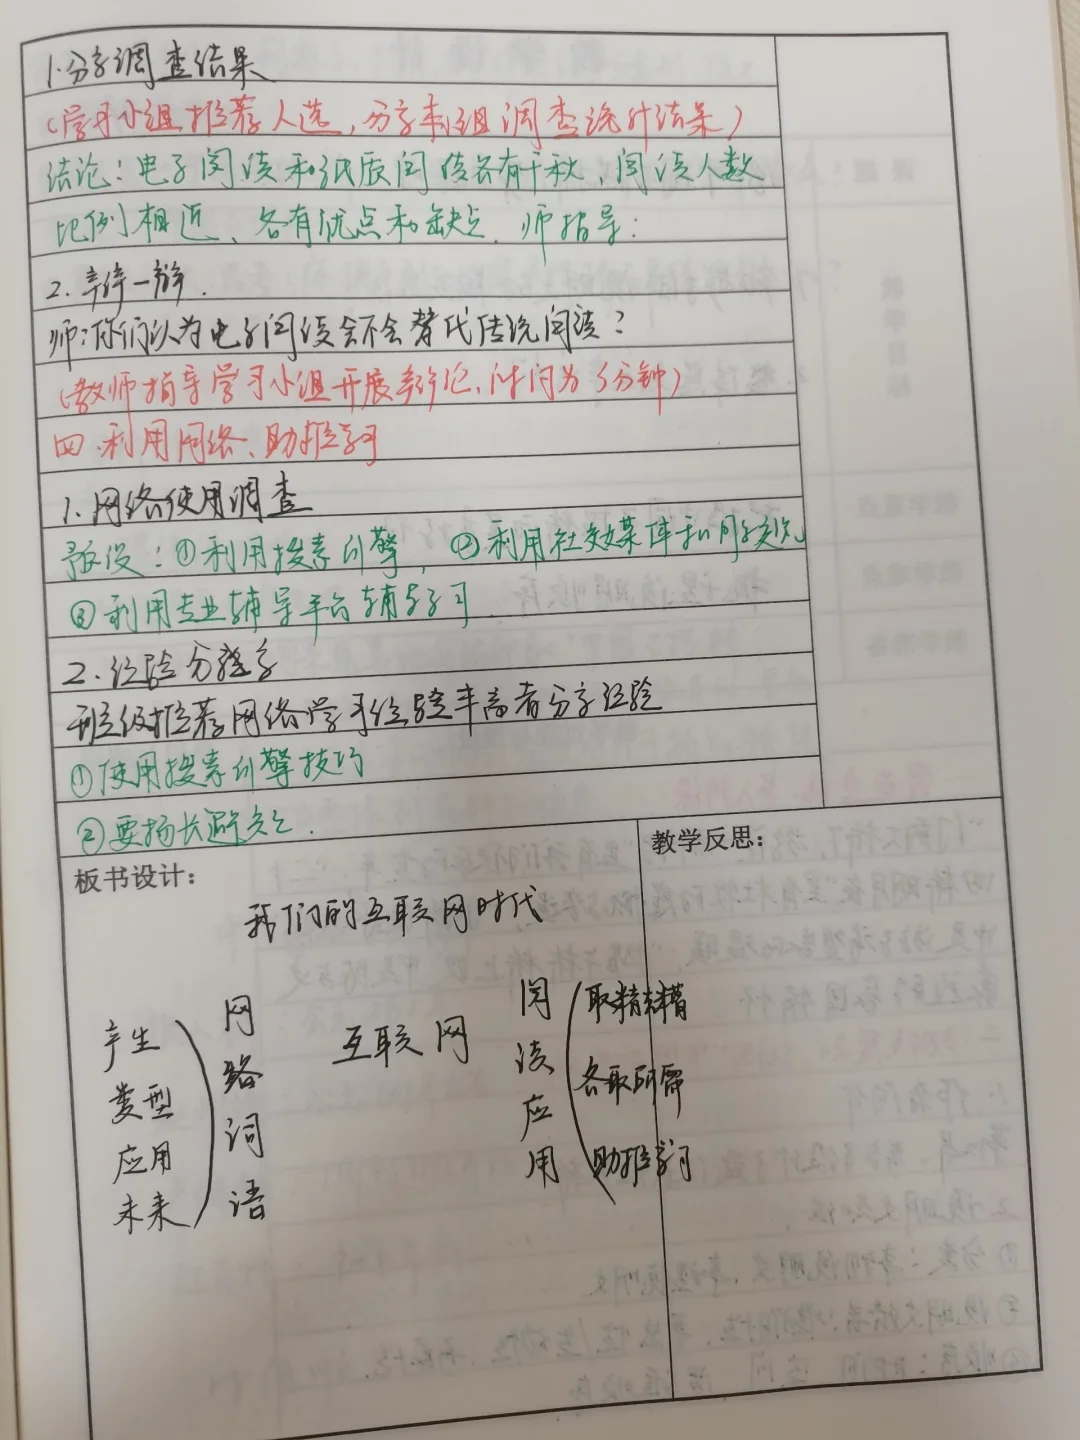 1.分享调查结果
(学习小组推荐人选,分享本组调查统计结果)
结论:电子阅读和纸质阅读各有千秋,阅读人数
比例相近、各有优点和缺点.师指导:
2.辩一辩.
师:你们认为电子阅读会不会替代传统阅读?
(教师指导学习小组开展辩论,时间为5分钟)
四.利用网络、助推学习
1.网络使用调查
预设:①利用搜索引擎,②利用社交媒体和网上资源
③利用专业辅导平台辅导学习.
2.经验分享
班级推荐网络学习经验丰富者分享经验
①使用搜索引擎技巧
②要扬长避短.
板书设计:
教学反思:
我们的互联网时代
产生
类型
应用
未来
网络词语
互联网
阅读应用
取精去糟
各取所需
助推学习